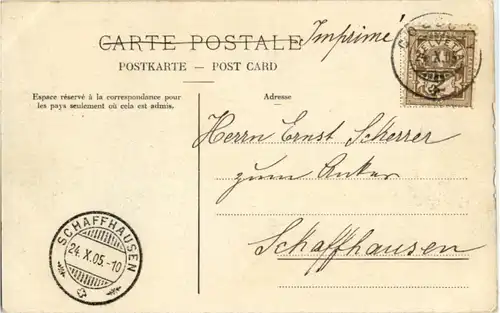 CARTE POSTALE
Imprimé
POSTKARTE — POST CARD
Espace réservé à la correspondance pour
les pays seulement où cela est admis.
Adresse
24. X. 05
Herrn Ernst Scherrer
zum Anker
Schaffhausen
SCHAFFHAUSEN
24. X. 05.-10